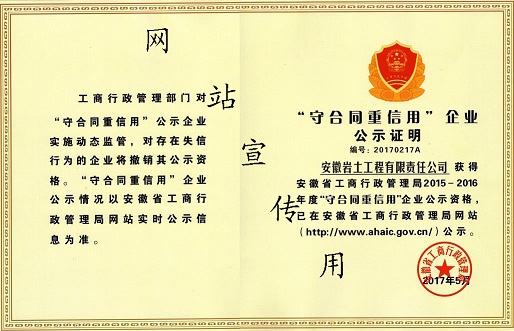 工商行政管理部门对
“守合同重信用”公示企业
实施动态监管，对存在失信
行为的企业将撤销其公示资
格。“守合同重信用”企业
公示情况以安徽省工商行
政管理局网站实时公示信
息为准。
网站宣传用
“守合同重信用”企业
公示证明
编号：20170217A
安徽岩土工程有限责任公司 获得
安徽省工商行政管理局2015-2016
年度“守合同重信用”企业公示资格，
已在安徽省工商行政管理局网站
（http://www.ahaic.gov.cn/）公示。
安徽省工商行政管理局
2017年5月